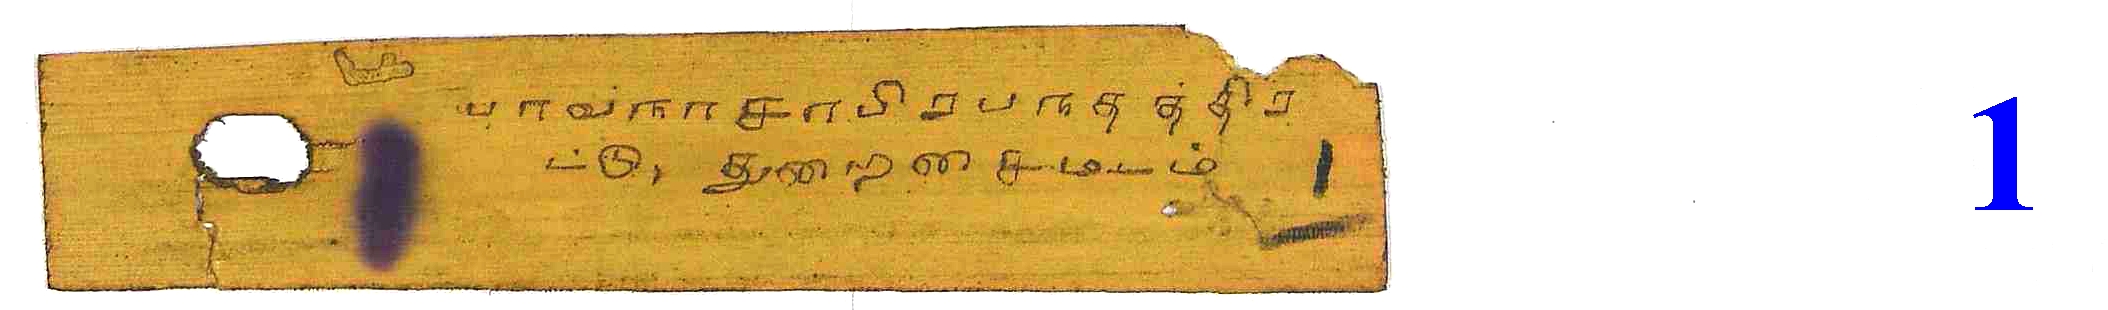 பாவநாசாபிரபநதத்திர
ட்டு, துறைசைமடம் 1
1